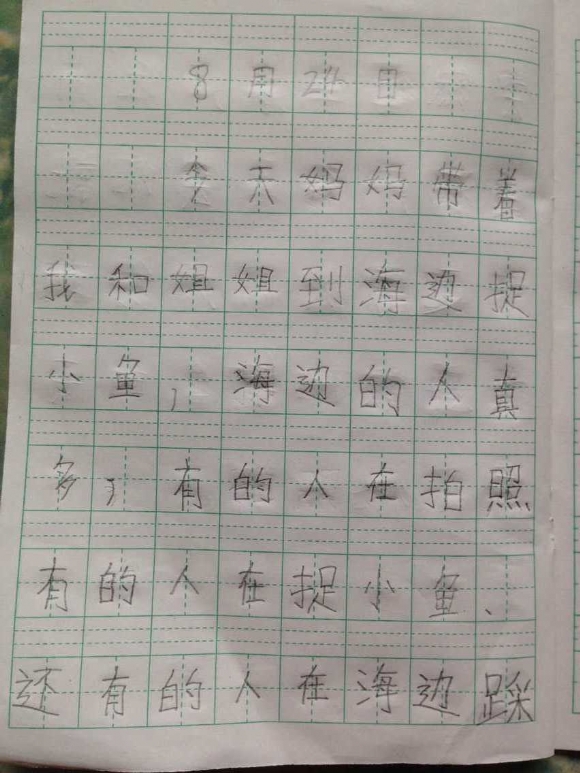 8月24日
今天妈妈带着
我和姐姐到海边捉
小鱼，海边的人真
多，有的人在拍照
有的人在捉小鱼、
还有的人在海边踩